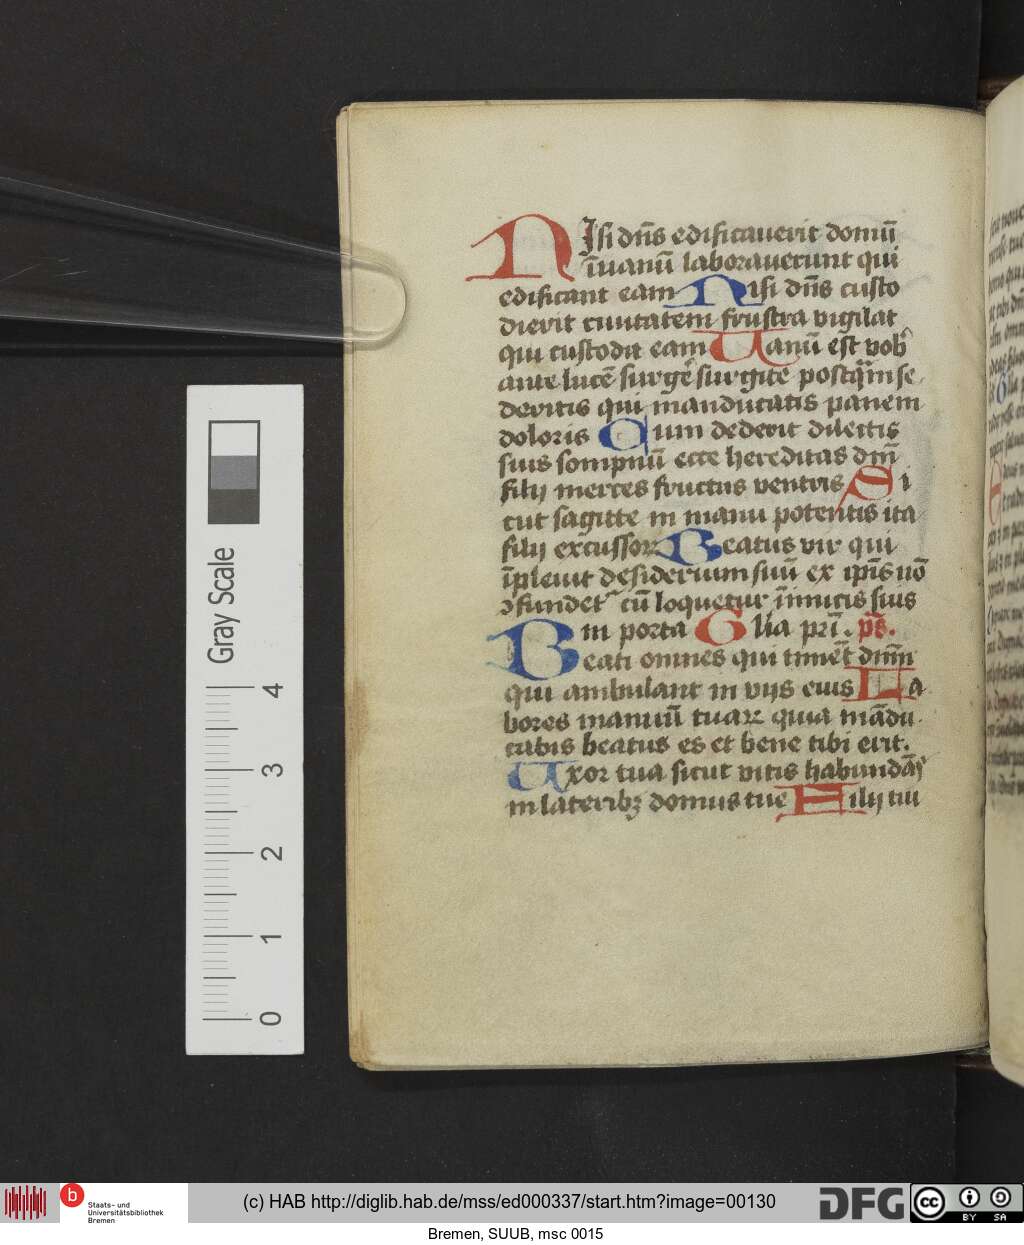 NIsi dn̄s edificauerit domū
ī uanū laborauerunt qui
edificant eam Nisi dn̄s custo
dierit ciuitatem frustra vigilat
qui custodit eam Uanū est̄ vob̾
ante lucē surgē surgite postq̄m se
deritis qui manducatis panem
doloris Cum dederit dilectis
suis sompnū ecce hereditas dn̄i
filij merces fructus ventris Si
cut sagitte in manu potentis ita
filij excussorꝝ Beatus vir qui
īpleuit desiderium suū ex ip̄is nō
ꝯfundet᷑ cū loquetur īnimicis suis
in porta Glīa pri . ps̄.
Beati omnes qui timēt dnm̄
qui ambulant in vijs eius La
bores manuū tuarꝝ quia mādu
cabis beatus es et bene tibi erit.
Uxor tua sicut vitis habundās
in lateribꝫ domus tue Filij tui
Gray Scale
4
3
2
1
0
Staats- und
Universitätsbibliothek
Bremen
(c) HAB http://diglib.hab.de/mss/ed000337/start.htm?image=00130
DFG
cc BY SA
Bremen, SUUB, msc 0015